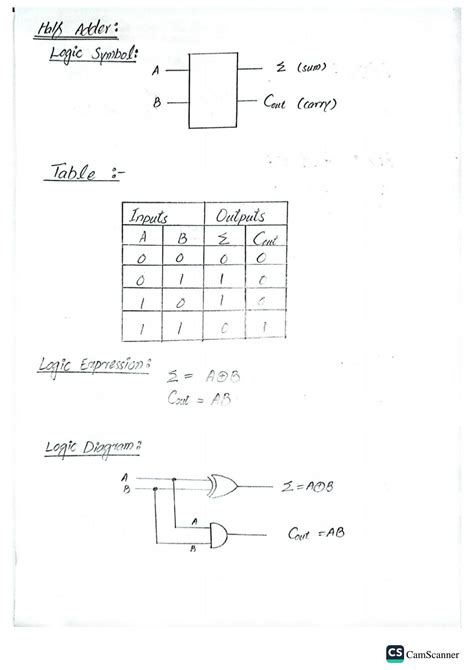 Half Adder:
Logic Symbol:
A Σ (sum)
B Cout (carry)
Table :-
Inputs Outputs
A B Σ Cout
0 0 0 0
0 1 1 0
1 0 1 0
1 1 0 1
Logic Expression:
Σ = A⊕B
Cout = AB
Logic Diagram:
A
B
Σ=A⊕B
A
B
Cout =AB
CS CamScanner